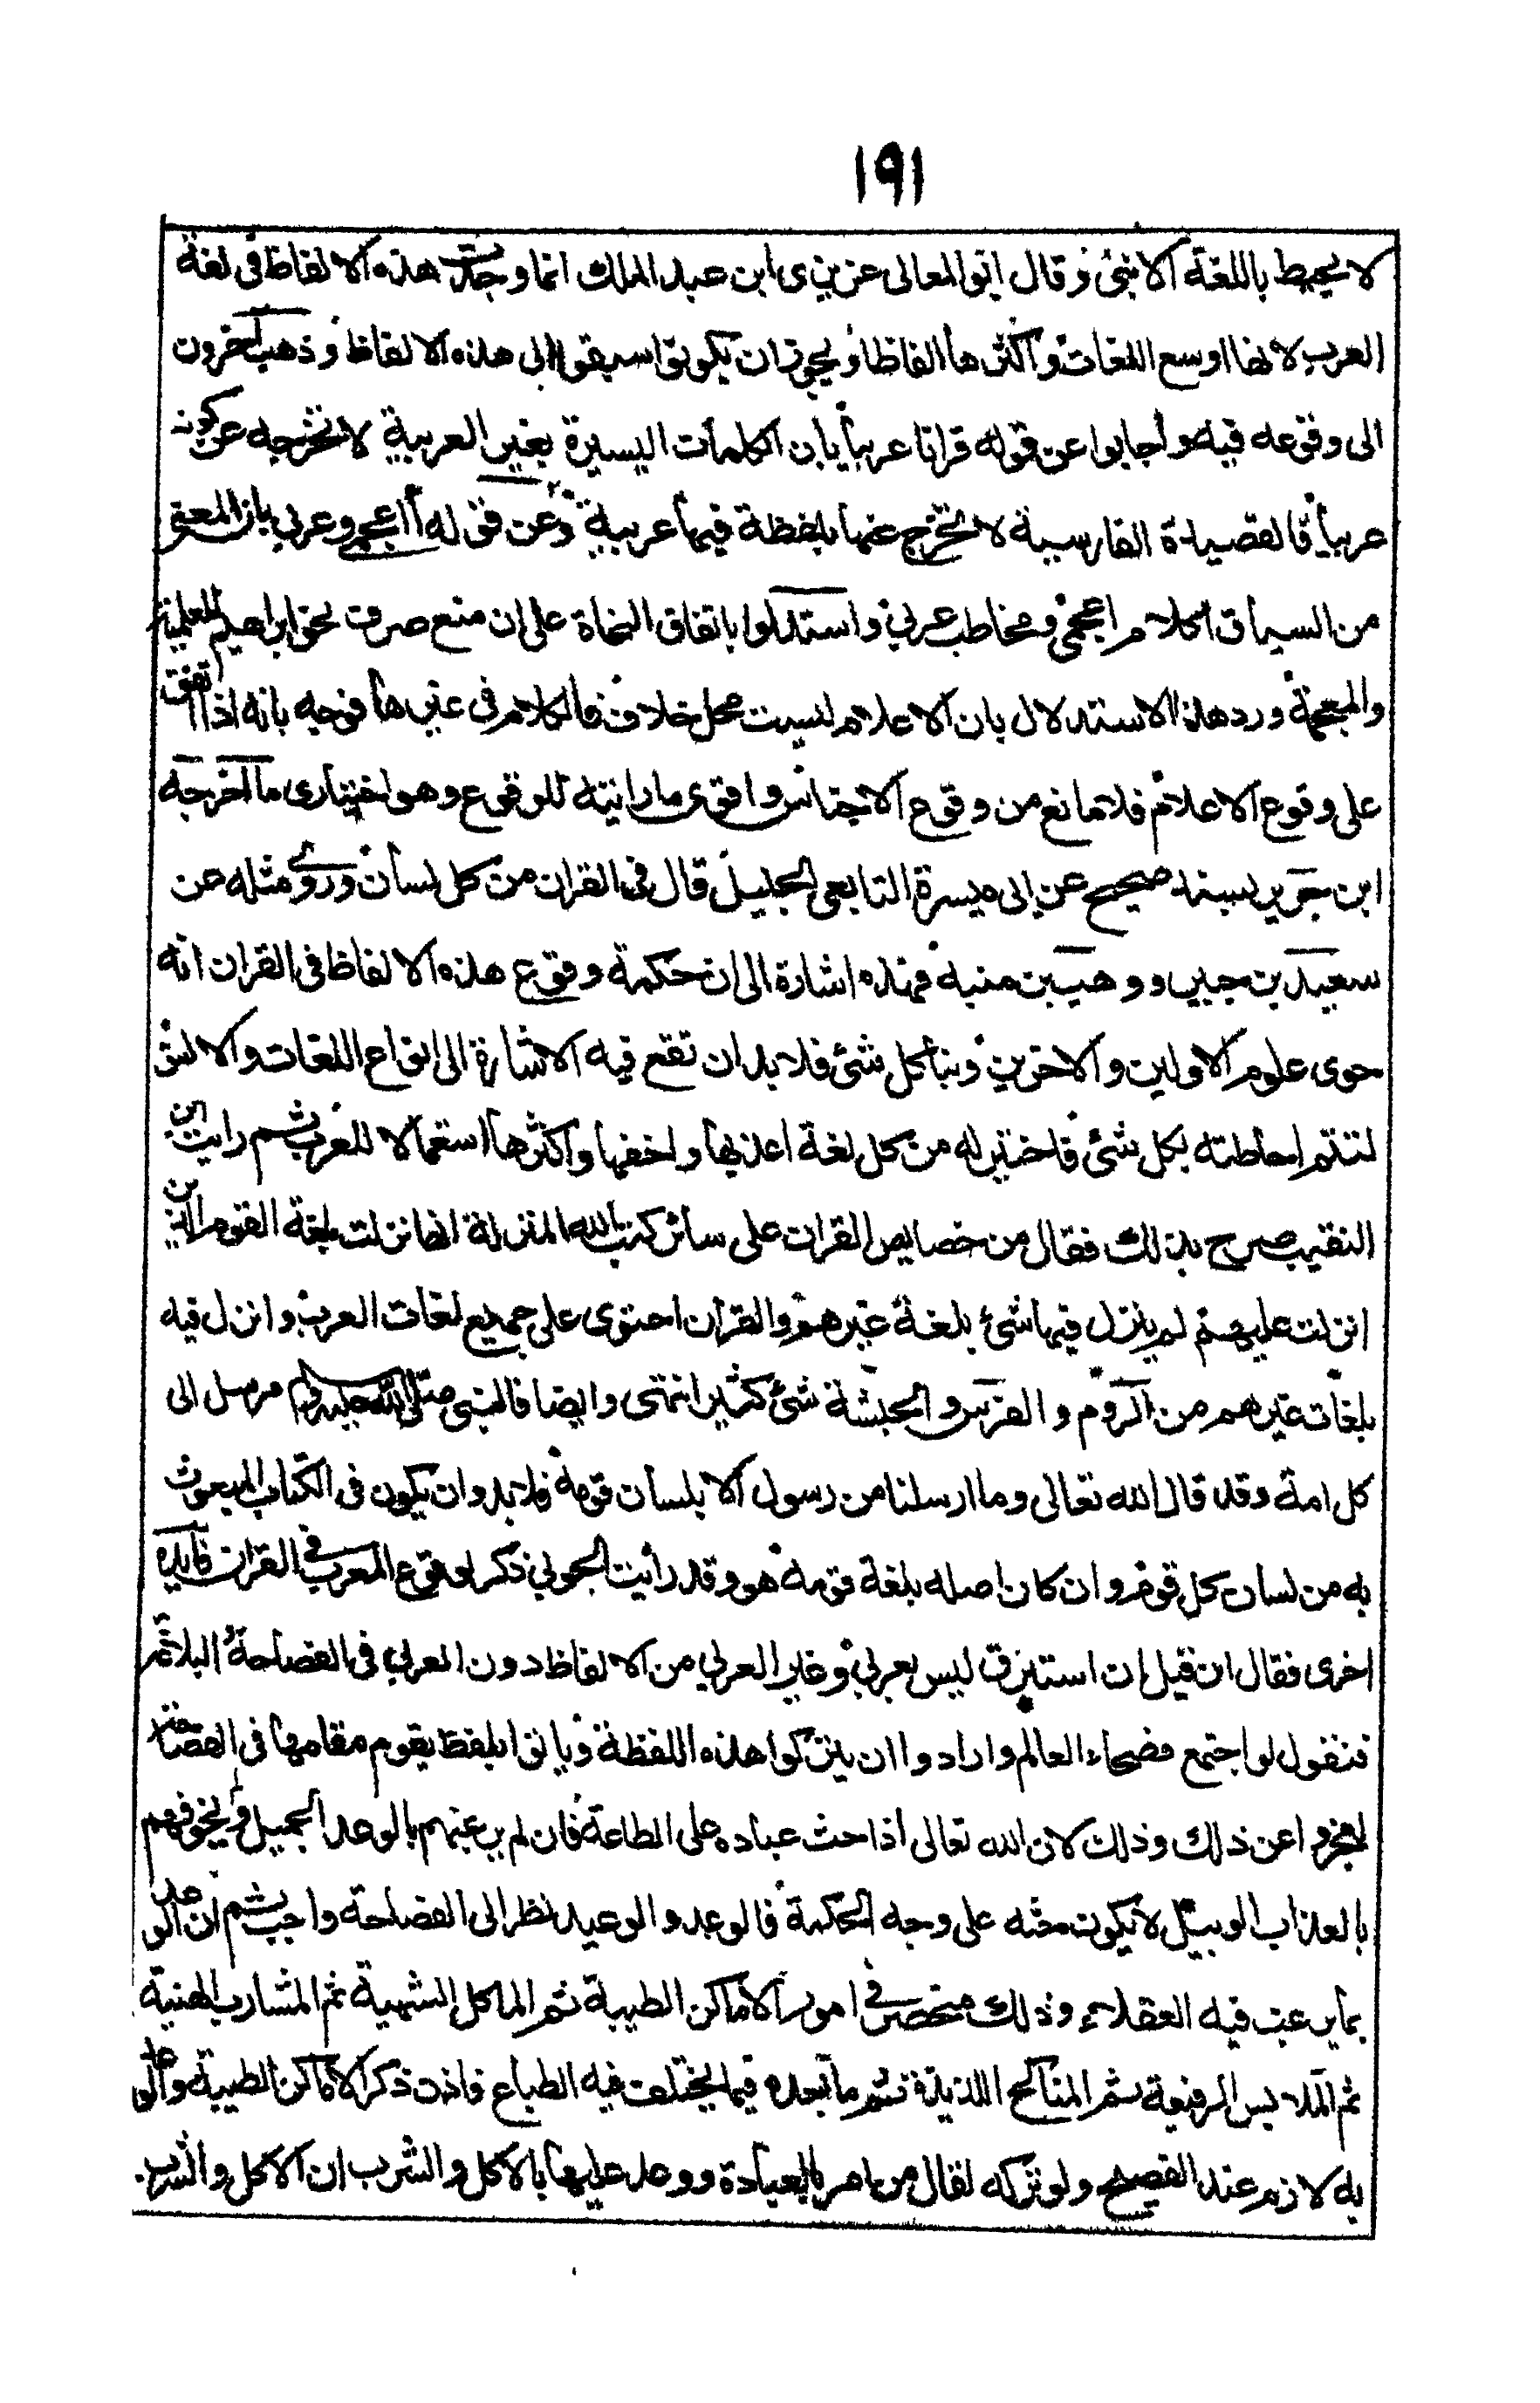 ١٩١
لا يحيط باللغة الا نبى وقال ابو المعالى عزيزى ابن عبد الملك انما وجدت هذه الالفاظ فى لغة
العرب لانها اوسع اللغات واكثرها الفاظا ويجوز ان يكونوا سبقوا الى هذه الالفاظ وذهب اخرون
الى وقوعه فيه واجابوا عن قوله قرانا عربيا بان الكلمات اليسيرة بغير العربية لا تخرجه عن كونه
عربيا فالقصيدة الفارسية لا تخرج عنها بلفظة فيها عربية وعن قوله أاعجمى وعربى بان المعنى
من السياق اكلام اعجمى ومخاطب عربى واستدلوا باتفاق النحاة على ان منع صرف نحو ابراهيم للعلمية
والعجمة ورد هذا الاستدلال بان الاعلام ليست محل خلاف فالكلام فى غيرها فوجه بانه اذا اتفق
على وقوع الاعلام فلا مانع من وقوع الاجناس واقوى ما رايته للوقوع وهو اختيارى ما اخرجه
ابن جرير بسند صحيح عن ابى ميسرة التابعى الجليل قال فى القران من كل لسان وروى مثله عن
سعيد بن جبير ووهب بن منبه فهذه اشارة الى ان حكمة وقوع هذه الالفاظ فى القران انه
حوى علوم الاولين والاخرين ونبأ كل شئ فلا بد ان تقع فيه الاشارة الى انواع اللغات والالسن
لتتم احاطته بكل شئ فاختير له من كل لغة اعذبها واخفها واكثرها استعمالا للعرب ثم رايت ابن
النقيب صرح بذلك فقال من خصايص القران على سائر كتب الله المنزلة انها نزلت بلغة القوم الذين
انزلت عليهم لم ينزل فيها شئ بلغة غيرهم والقران احتوى على جميع لغات العرب وانزل فيه
بلغات غيرهم من الروم والفرس والحبشة شئ كثير انتهى وايضا فالنبى صلى الله عليه وسلم مرسل الى
كل امة وقد قال الله تعالى وما ارسلنا من رسول الا بلسان قومه فلا بد وان يكون فى الكتاب المبعوث
به من لسان كل قوم وان كان اصله بلغة قومه هو وقد رأيت الجوينى ذكر لوقوع المعرب فى القران فايدة
اخرى فقال ان قيل ان استبرق ليس بعربى وغير العربى من الالفاظ دون العربى فى الفصاحة والبلاغة
فنقول لو اجتمع فصحاء العالم وارادوا ان يتركوا هذه اللفظة وياتوا بلفظ يقوم مقامها فى الفصاحة
لعجزوا عن ذلك وذلك لان الله تعالى اذا حث عباده على الطاعة فان لم يرغبهم بالوعد الجميل ويخوفهم
بالعذاب الوبيل لا يكون حثه على وجه الحكمة فالوعد والوعيد نظرا الى الفصاحة واجب ثم ان الوعد
بما يرغب فيه العقلاء وذلك منحصر فى امور الاماكن الطيبة ثم الماكل الشهية ثم المشارب الهنية
ثم الملابس الرفيعة ثم المناكح اللذيذة ثم ما بعده فيما يختلف فيه الطباع فاذن ذكر الاماكن الطيبة والوعد
به لازم عند الفصيح ولو تركه لقال من امر بالعبادة ووعد عليها بالاكل والشرب ان الاكل والشرب